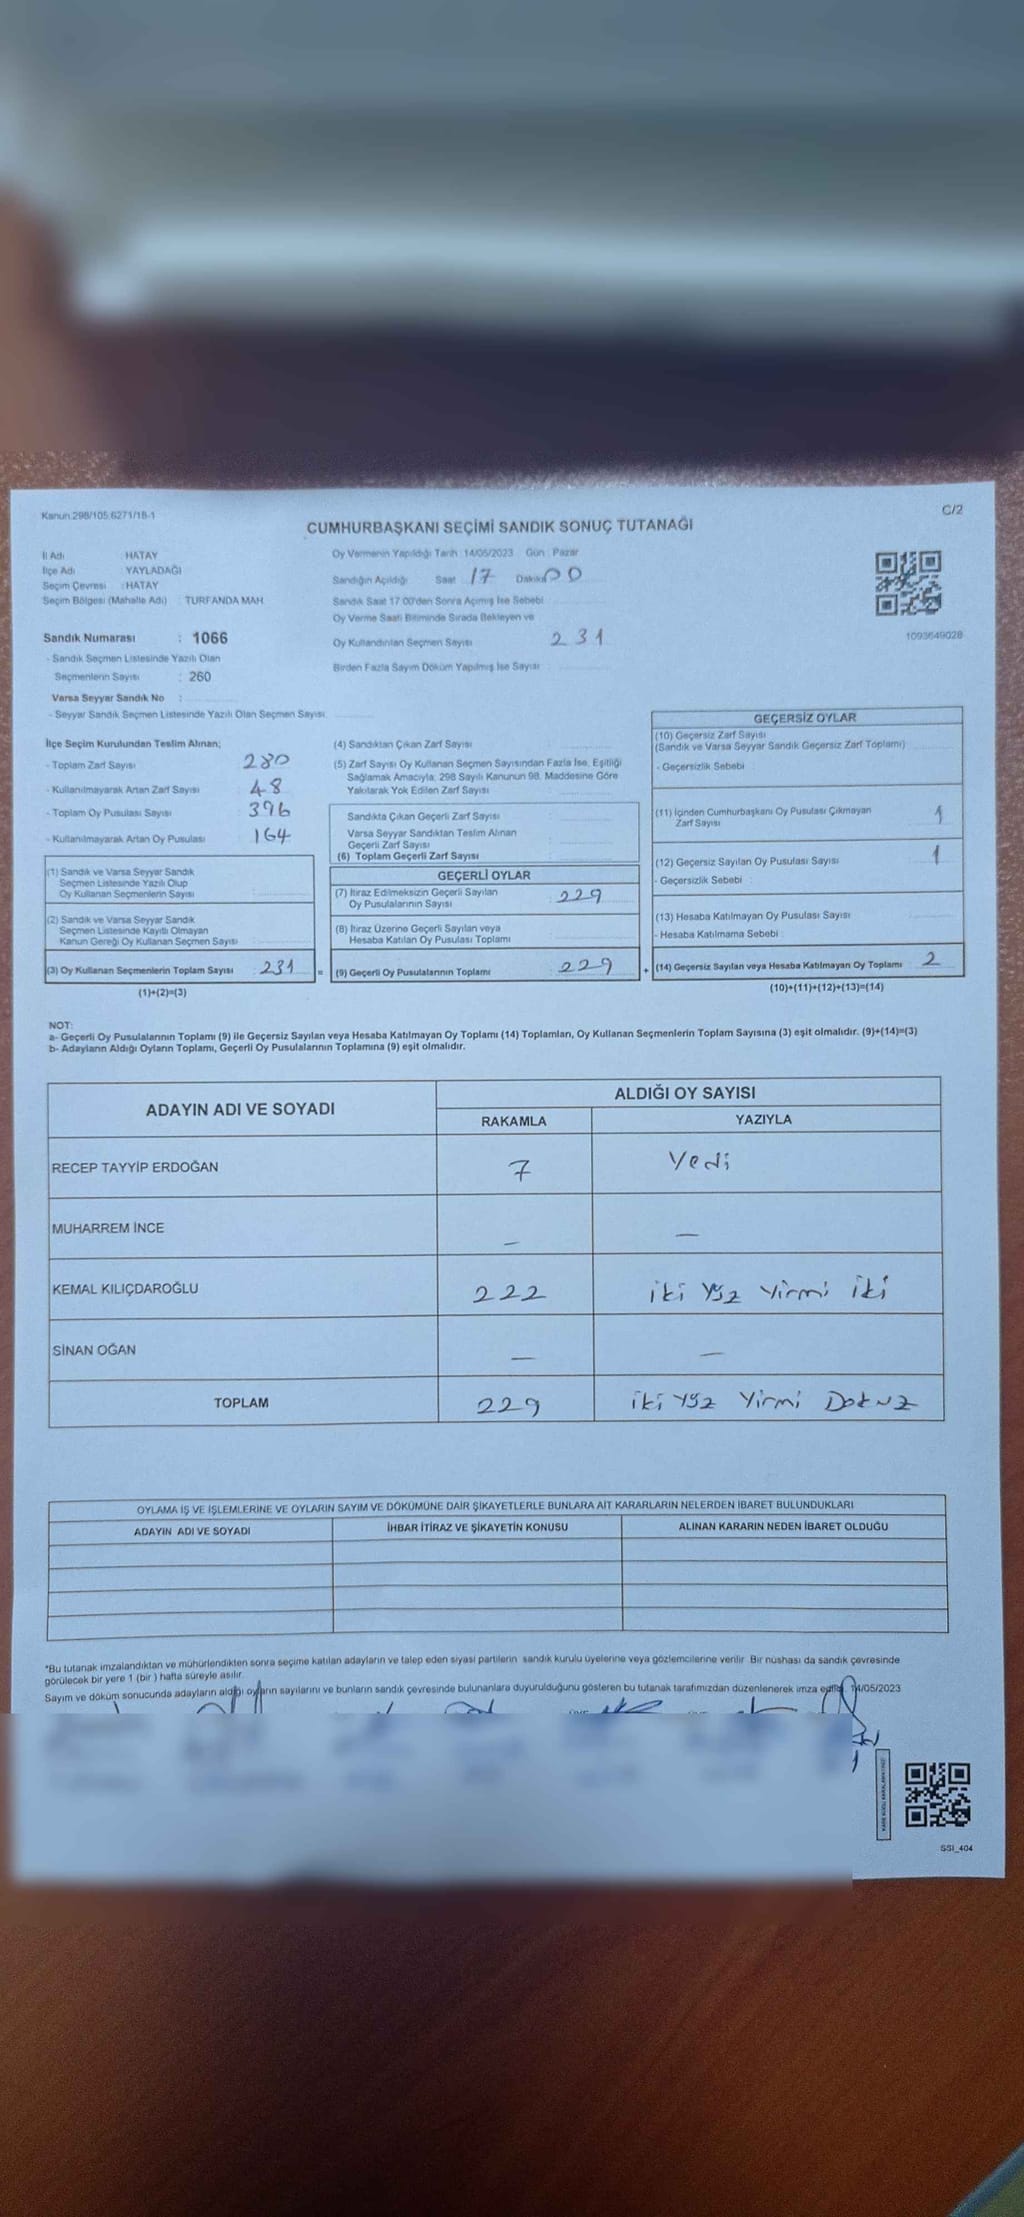 Kanun:298/105,6271/18-1
C/2
CUMHURBAŞKANI SEÇİMİ SANDIK SONUÇ TUTANAĞI
İl Adı : HATAY
İlçe Adı : YAYLADAĞI
Seçim Çevresi : HATAY
Seçim Bölgesi (Mahalle Adı) : TURFANDA MAH.
Sandık Numarası : 1066
- Sandık Seçmen Listesinde Yazılı Olan
Seçmenlerin Sayısı : 260
Varsa Seyyar Sandık No :
- Seyyar Sandık Seçmen Listesinde Yazılı Olan Seçmen Sayısı
Oy Vermenin Yapıldığı Tarih : 14/05/2023 Gün : Pazar
Sandığın Açıldığı Saat 17 Dakika 00
Sandık Saat 17:00'den Sonra Açımış İse Sebebi
Oy Verme Saati Bitiminde Sırada Bekleyen ve
Oy Kullandırılan Seçmen Sayısı 231
Birden Fazla Sayım Döküm Yapılmış İse Sayısı
1093649028
İlçe Seçim Kurulundan Teslim Alınan;
- Toplam Zarf Sayısı 280
- Kullanılmayarak Artan Zarf Sayısı 48
- Toplam Oy Pusulası Sayısı 396
- Kullanılmayarak Artan Oy Pusulası 164
(1) Sandık ve Varsa Seyyar Sandık
Seçmen Listesinde Yazılı Olup
Oy Kullanan Seçmenlerin Sayısı
(2) Sandık ve Varsa Seyyar Sandık
Seçmen Listesinde Kayıtlı Olmayan
Kanun Gereği Oy Kullanan Seçmen Sayısı
(3) Oy Kullanan Seçmenlerin Toplam Sayısı 231
(1)+(2)=(3)
=
(4) Sandıktan Çıkan Zarf Sayısı
(5) Zarf Sayısı Oy Kullanan Seçmen Sayısından Fazla İse, Eşitliği
Sağlamak Amacıyla, 298 Sayılı Kanunun 98. Maddesine Göre
Yakılarak Yok Edilen Zarf Sayısı
Sandıkta Çıkan Geçerli Zarf Sayısı
Varsa Seyyar Sandıktan Teslim Alınan
Geçerli Zarf Sayısı
(6) Toplam Geçerli Zarf Sayısı
GEÇERLİ OYLAR
(7) İtiraz Edilmeksizin Geçerli Sayılan
Oy Pusulalarının Sayısı 229
(8) İtiraz Üzerine Geçerli Sayılan veya
Hesaba Katılan Oy Pusulası Toplamı
(9) Geçerli Oy Pusulalarının Toplamı 229
+
GEÇERSİZ OYLAR
(10) Geçersiz Zarf Sayısı
(Sandık ve Varsa Seyyar Sandık Geçersiz Zarf Toplamı)
- Geçersizlik Sebebi
(11) İçinden Cumhurbaşkanı Oy Pusulası Çıkmayan
Zarf Sayısı 1
(12) Geçersiz Sayılan Oy Pusulası Sayısı 1
- Geçersizlik Sebebi
(13) Hesaba Katılmayan Oy Pusulası Sayısı
- Hesaba Katılmama Sebebi
(14) Geçersiz Sayılan veya Hesaba Katılmayan Oy Toplamı 2
(10)+(11)+(12)+(13)=(14)
NOT:
a- Geçerli Oy Pusulalarının Toplamı (9) ile Geçersiz Sayılan veya Hesaba Katılmayan Oy Toplamı (14) Toplamları, Oy Kullanan Seçmenlerin Toplam Sayısına (3) eşit olmalıdır. (9)+(14)=(3)
b- Adayların Aldığı Oyların Toplamı, Geçerli Oy Pusulalarının Toplamına (9) eşit olmalıdır.
ADAYIN ADI VE SOYADI
ALDIĞI OY SAYISI
RAKAMLA YAZIYLA
RECEP TAYYİP ERDOĞAN 7 Yedi
MUHARREM İNCE – –
KEMAL KILIÇDAROĞLU 222 iki yüz Yirmi iki
SİNAN OĞAN – –
TOPLAM 229 iki yüz Yirmi Dokuz
OYLAMA İŞ VE İŞLEMLERİNE VE OYLARIN SAYIM VE DÖKÜMÜNE DAİR ŞİKAYETLERLE BUNLARA AİT KARARLARIN NELERDEN İBARET BULUNDUKLARI
ADAYIN ADI VE SOYADI İHBAR İTİRAZ VE ŞİKAYETİN KONUSU ALINAN KARARIN NEDEN İBARET OLDUĞU
*Bu tutanak imzalandıktan ve mühürlendikten sonra seçime katılan adayların ve talep eden siyasi partilerin sandık kurulu üyelerine veya gözlemcilerine verilir. Bir nüshası da sandık çevresinde
görülecek bir yere 1 (bir ) hafta süreyle asılır.
Sayım ve döküm sonucunda adayların aldığı oyların sayılarını ve bunların sandık çevresinde bulunanlara duyurulduğunu gösteren bu tutanak tarafımızdan düzenlenerek imza edildi. 14/05/2023
SSI_404